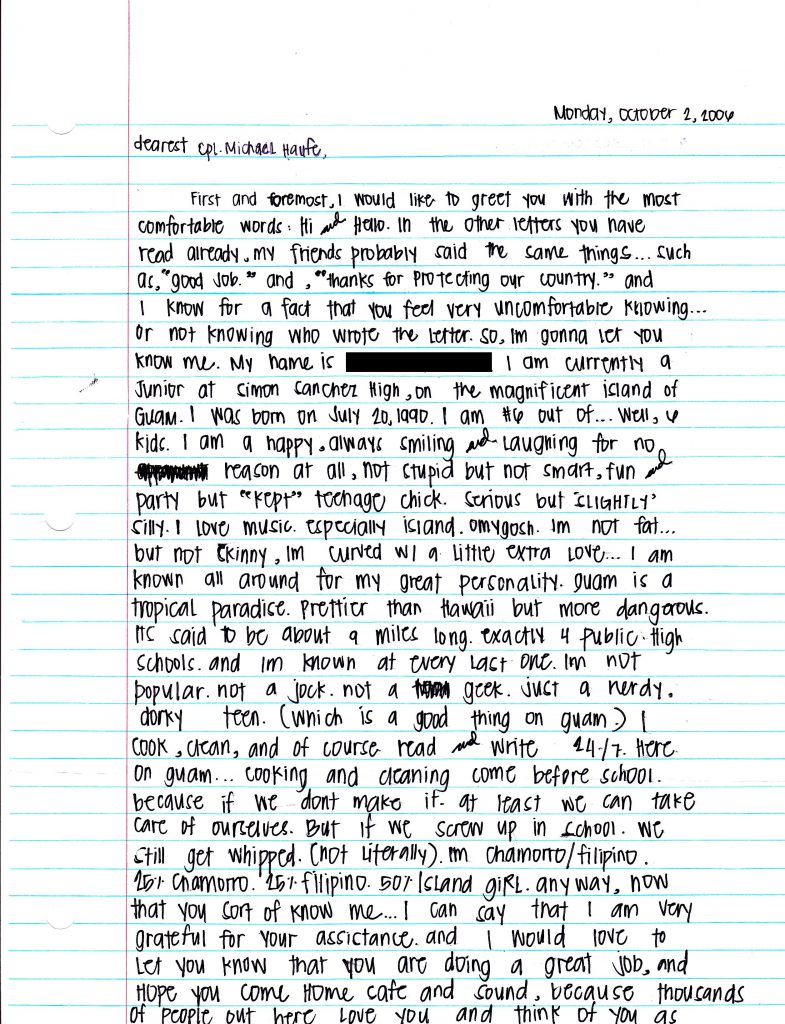 Monday, October 2, 2006
dearest Cpl. Michael Haufe,
First and foremost, I would like to greet you with the most
comfortable words: Hi and Hello. In the other letters you have
read already, my friends probably said the same things... such
as, "good job." and, "thanks for protecting our country." and
I know for a fact that you feel very uncomfortable knowing...
or not knowing who wrote the letter. So, Im gonna let you
know me. My name is I am currently a
Junior at Simon Sanchez High, on the magnificent island of
Guam. I was born on July 20, 1990. I am #6 out of... Well, 6
kids. I am a happy, always smiling and laughing for no
reason at all, not stupid but not smart, fun and
party but "kept" teenage chick. Serious but 'SLIGHTLY'
silly. I love music. especially island. omygosh. Im not fat...
but not skinny, Im curved w/ a little extra love... I am
known all around for my great personality. Guam is a
tropical paradise. Prettier than Hawaii but more dangerous.
Its said to be about 9 miles long. exactly 4 public High
schools. and Im known at every last one. Im not
popular. not a jock. not a geek. just a nerdy.
dorky teen. (which is a good thing on guam.) I
cook, clean, and of course read and write 24/7. Here
on guam... cooking and cleaning come before school.
because if we dont make it. at least we can take
care of ourselves. But if we screw up in school. we
still get whipped. (not literally). Im Chamorro/filipino.
25% Chamorro. 25% filipino. 50% Island giRL. anyway, now
that you sort of know me... I can say that I am very
grateful for your assictance. and I would love to
let you know that you are doing a great job, and
Hope you come Home safe and sound, because thousands
of people out here love you and think of you as